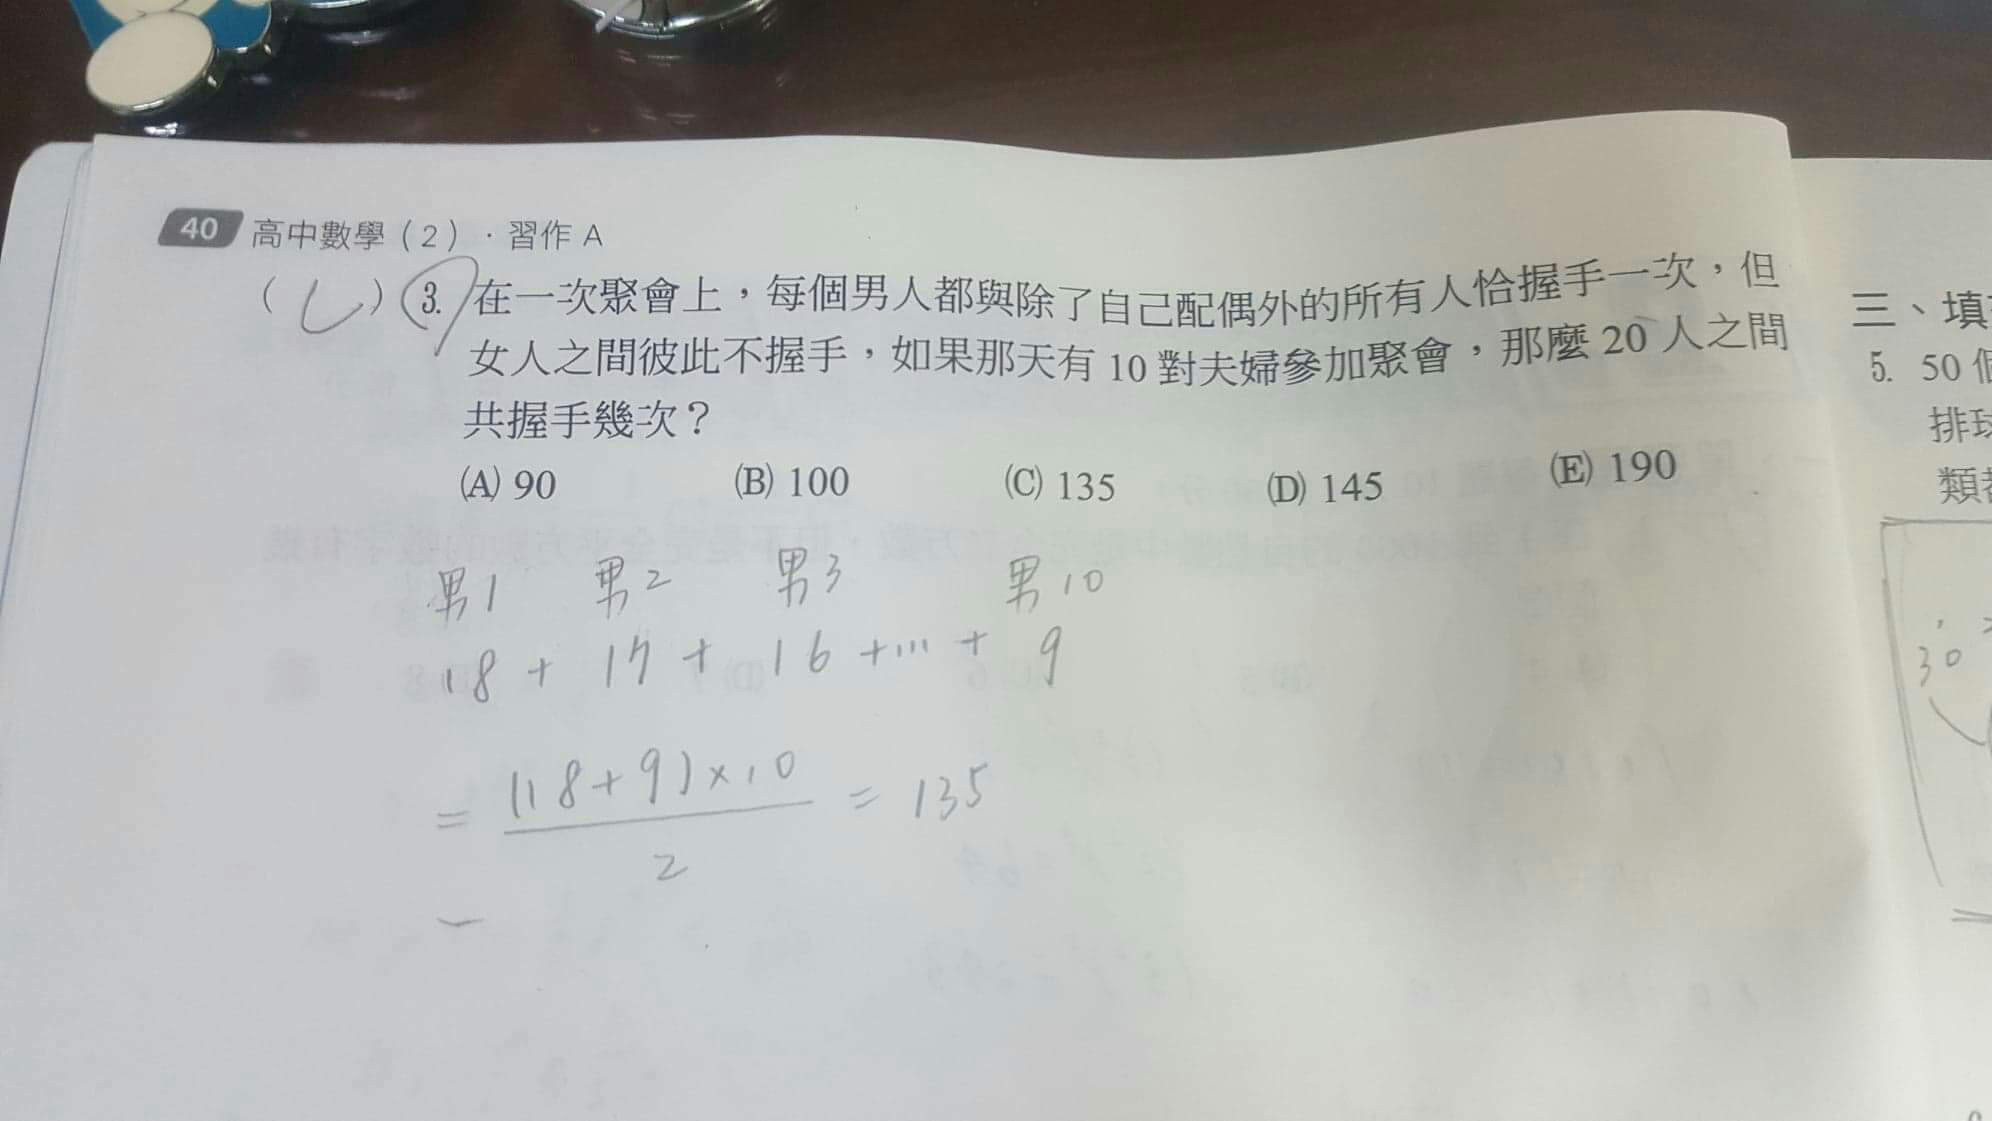 40 高中數學(2)．習作 A
( C ) 3. 在一次聚會上，每個男人都與除了自己配偶外的所有人恰握手一次，但
女人之間彼此不握手，如果那天有 10 對夫婦參加聚會，那麼 20 人之間
共握手幾次？
(A) 90 (B) 100 (C) 135 (D) 145 (E) 190
男1 男2 男3 男10
18 + 17 + 16 + ... + 9
= (18+9)×10 = 135
2
三、填
5. 50
排球
類
30